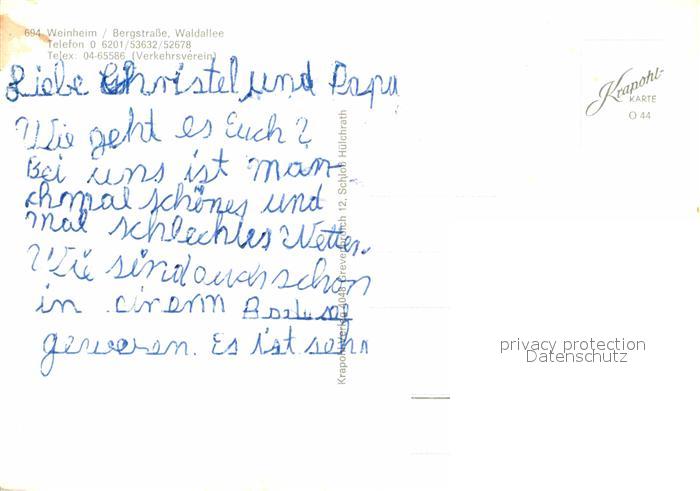 694 Weinheim / Bergstraße, Waldallee
Telefon 0 6201/53632/52678
Telex: 04-65586 (Verkehrsverein)
Liebe Christel und Papa
Wie geht es Euch?
Bei uns ist man-
chmal schönes und
mal schlechtes Wetter.
Wie sind auch schon
in einem
gewesen. Es ist sehr
Krapohl-
KARTE
O 44
Krapohl-Verlag 4048 Grevenbroich 12, Schloß Hülchrath
privacy protection
Datenschutz